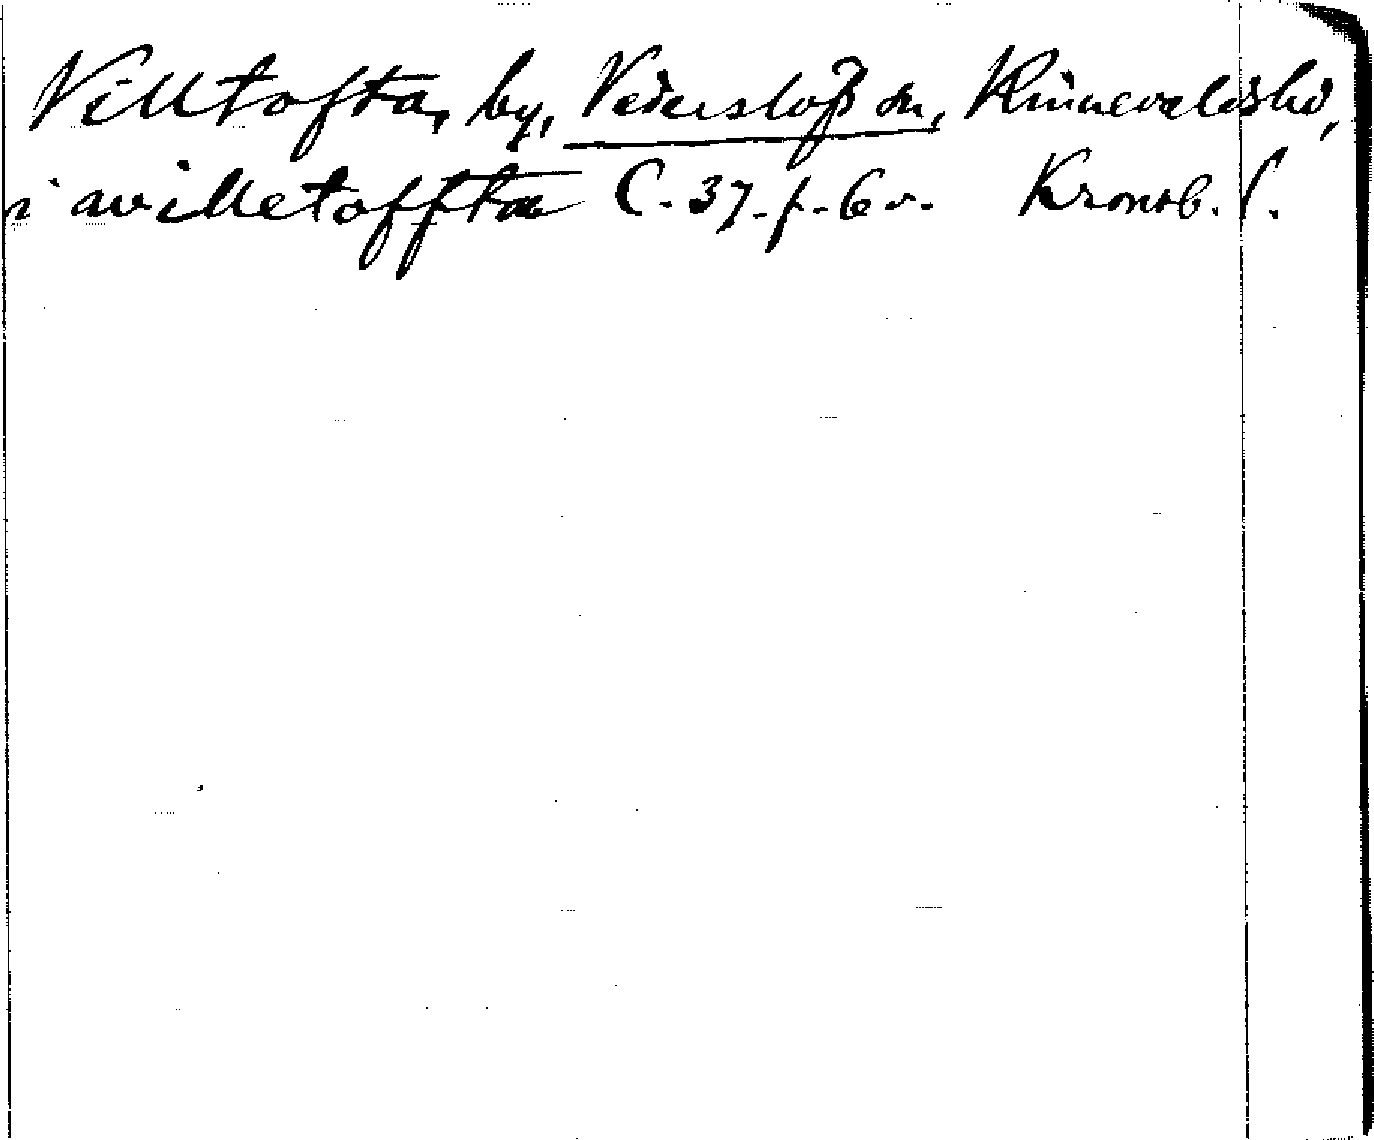 Villtofta, by, Vederslofs sn, Kinnevalds hd,
i avilletofftæ C. 37. f. 6 v. Kronob. l.